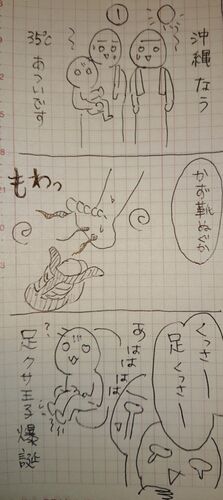 ①
沖縄なう
35℃
あついです
かず靴ぬぐか
もわっ
くっさー
足くっさー
あはははは
足クサ王子爆誕